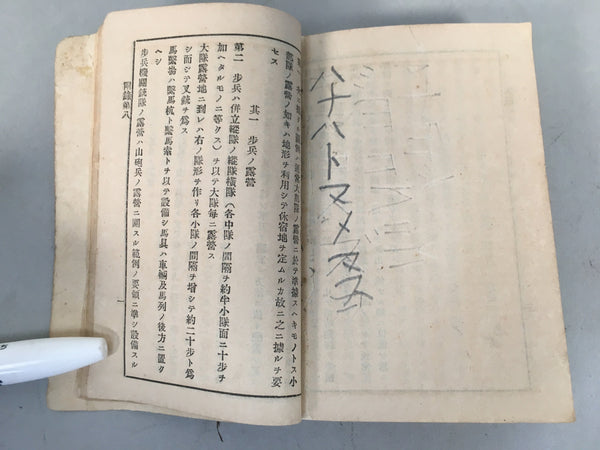 ハナハトマメ
露營ノ如キハ地形ヲ利用シテ休宿地ヲ定ムルカ故ニ之ニ據ルヲ要
セス
其一 步兵ノ露營
第二 步兵ハ併立縱隊ノ縱隊橫隊(各中隊ノ間隔ヲ約半小隊面ニ十步ヲ
加ヘタルモノニ等クス)ヲ以テ大隊每ニ露營ス
大隊露營地ニ到レハ右ノ隊形ヲ作リ各小隊ノ間隔ヲ增シテ約二十步ト爲
シ而シテ叉銃ヲ爲ス
馬繫場ハ繫馬杭ト繫馬索トヲ以テ設備シ馬具ハ車輛及馬列ノ後方ニ置ク
ヘシ
步兵機關銃隊ノ露營ハ山砲兵ノ露營ニ關スル範例ノ要領ニ準シ設備スル
附錄第八
一